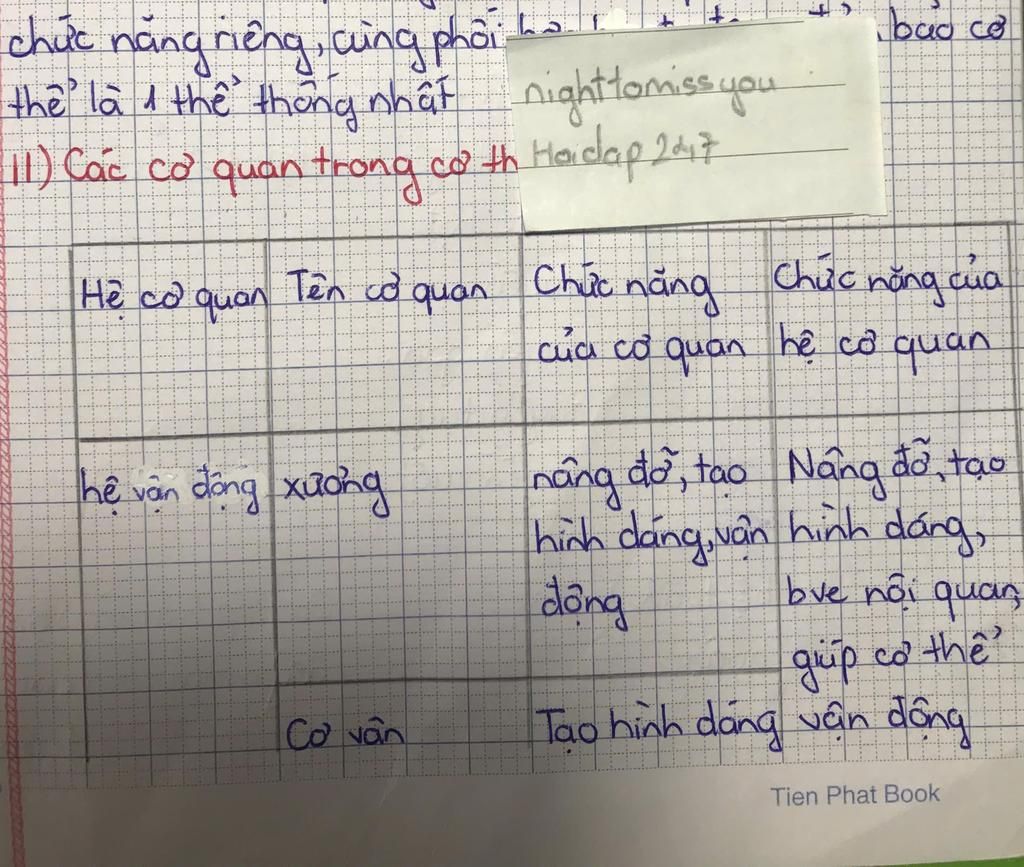 chức năng riêng, cùng phối bảo cơ
thể là 1 thể thống nhất
nighttomissyou
Hoidap247
II) Các cơ quan trong cơ th
Hệ cơ quan
Tên cơ quan
Chức năng
của cơ quan
Chức năng của
hệ cơ quan
hệ vận động
xương
nâng đỡ, tạo
hình dáng, vận
động
Nâng đỡ, tạo
hình dáng,
bve nội quan,
giúp cơ thể
vận động
Cơ vân
Tạo hình dáng
Tien Phat Book